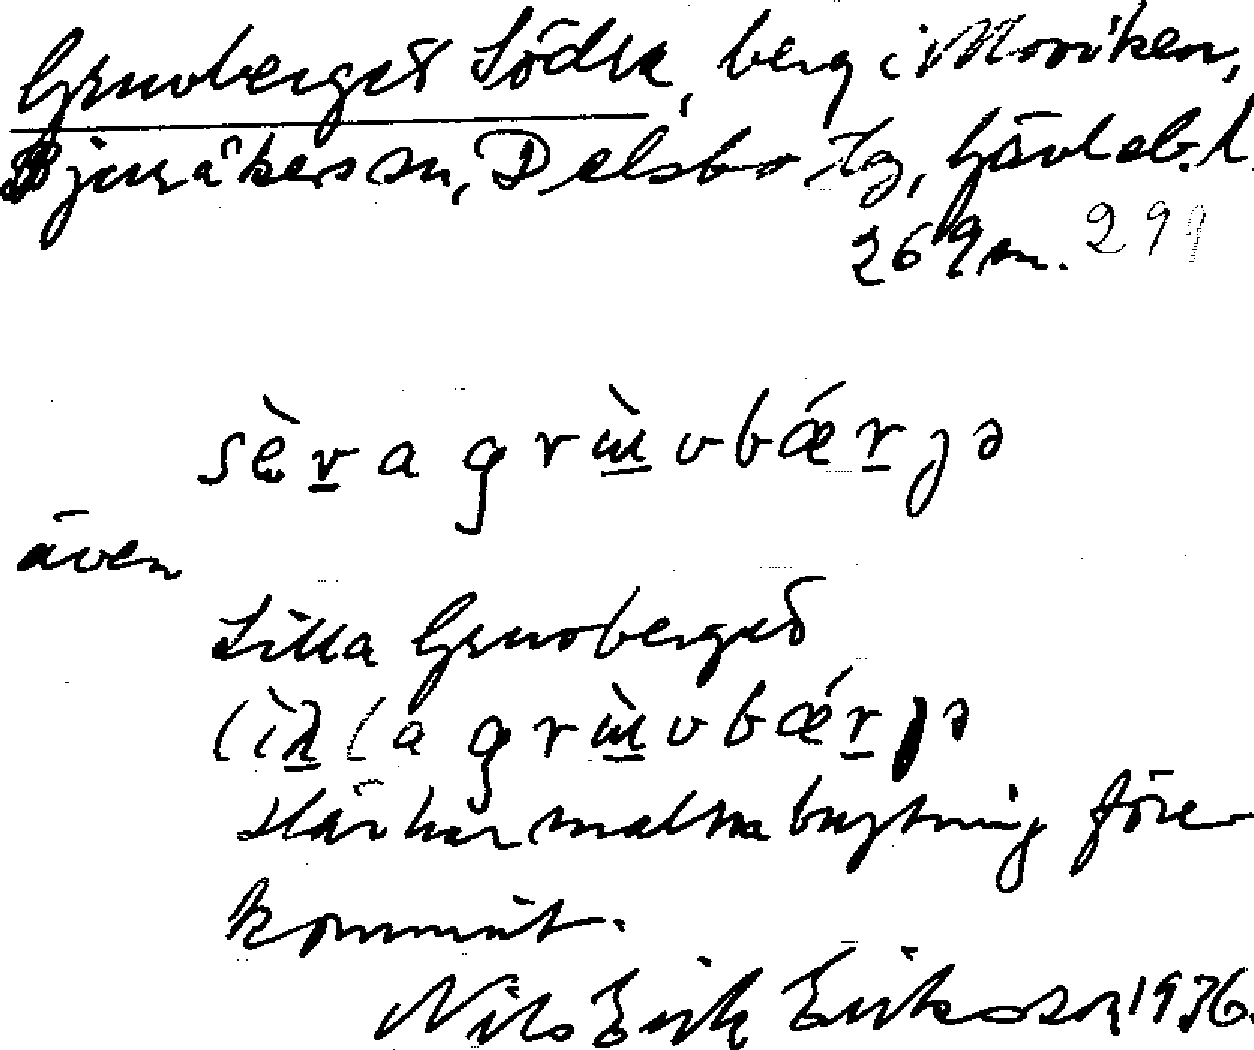 Gruvberget Södra, berg i Moviken,
Bjuråkers sn, Delsbo tg, Gävleb. l.
269 m. 299
sè̱r̲a grɯ̲̀vbǽr̲jə
även
Lilla Gruvberget
lìl̲la grɯ̲̀vbǽr̲jə
Här har malmbrytning före-
kommit.
Nils Erik Eriksson 1936.